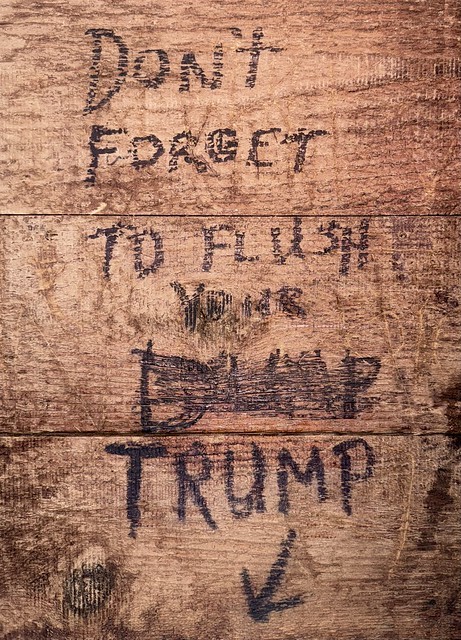 DON't
FORGET
TO FLUSH!
YOUR
DUMP
TRUMP